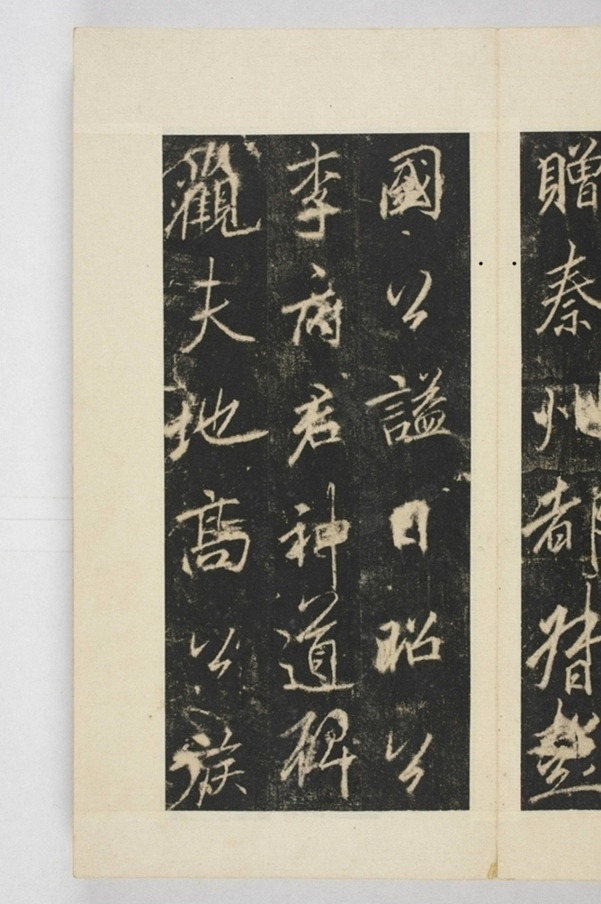 贈秦州都督彭
國公謚曰昭公
李府君神道碑
觀夫地高公族